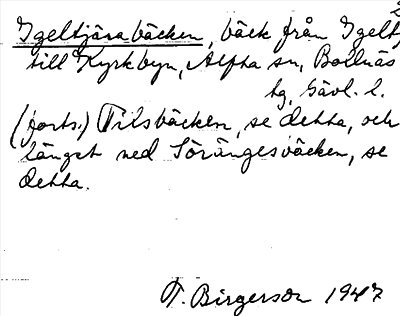 Igeltjärabäcken, bäck från Igeltj
till Kyrkbyn, Alfta sn, Bollnäs
tg, Gävl. l.
(forts.) Tilsbäcken, se detta, och
längst ned Sörängesbäcken, se
detta.
T. Birgerson 1947